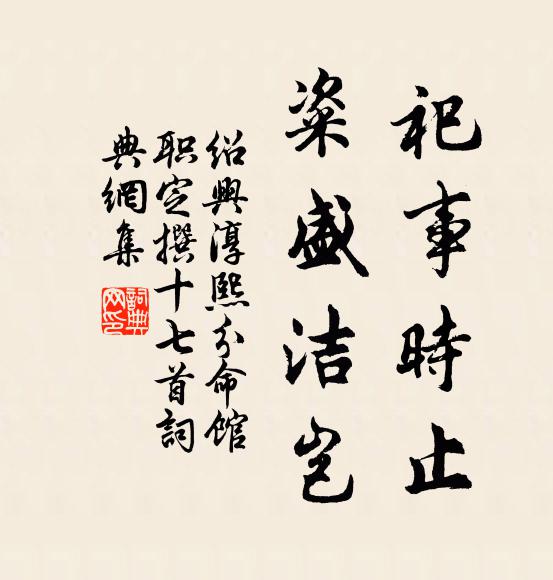 祀事時止
粢盛洁岂
绍興淳熙分命馆
职定撰十七首詞
典網集
詞典网印